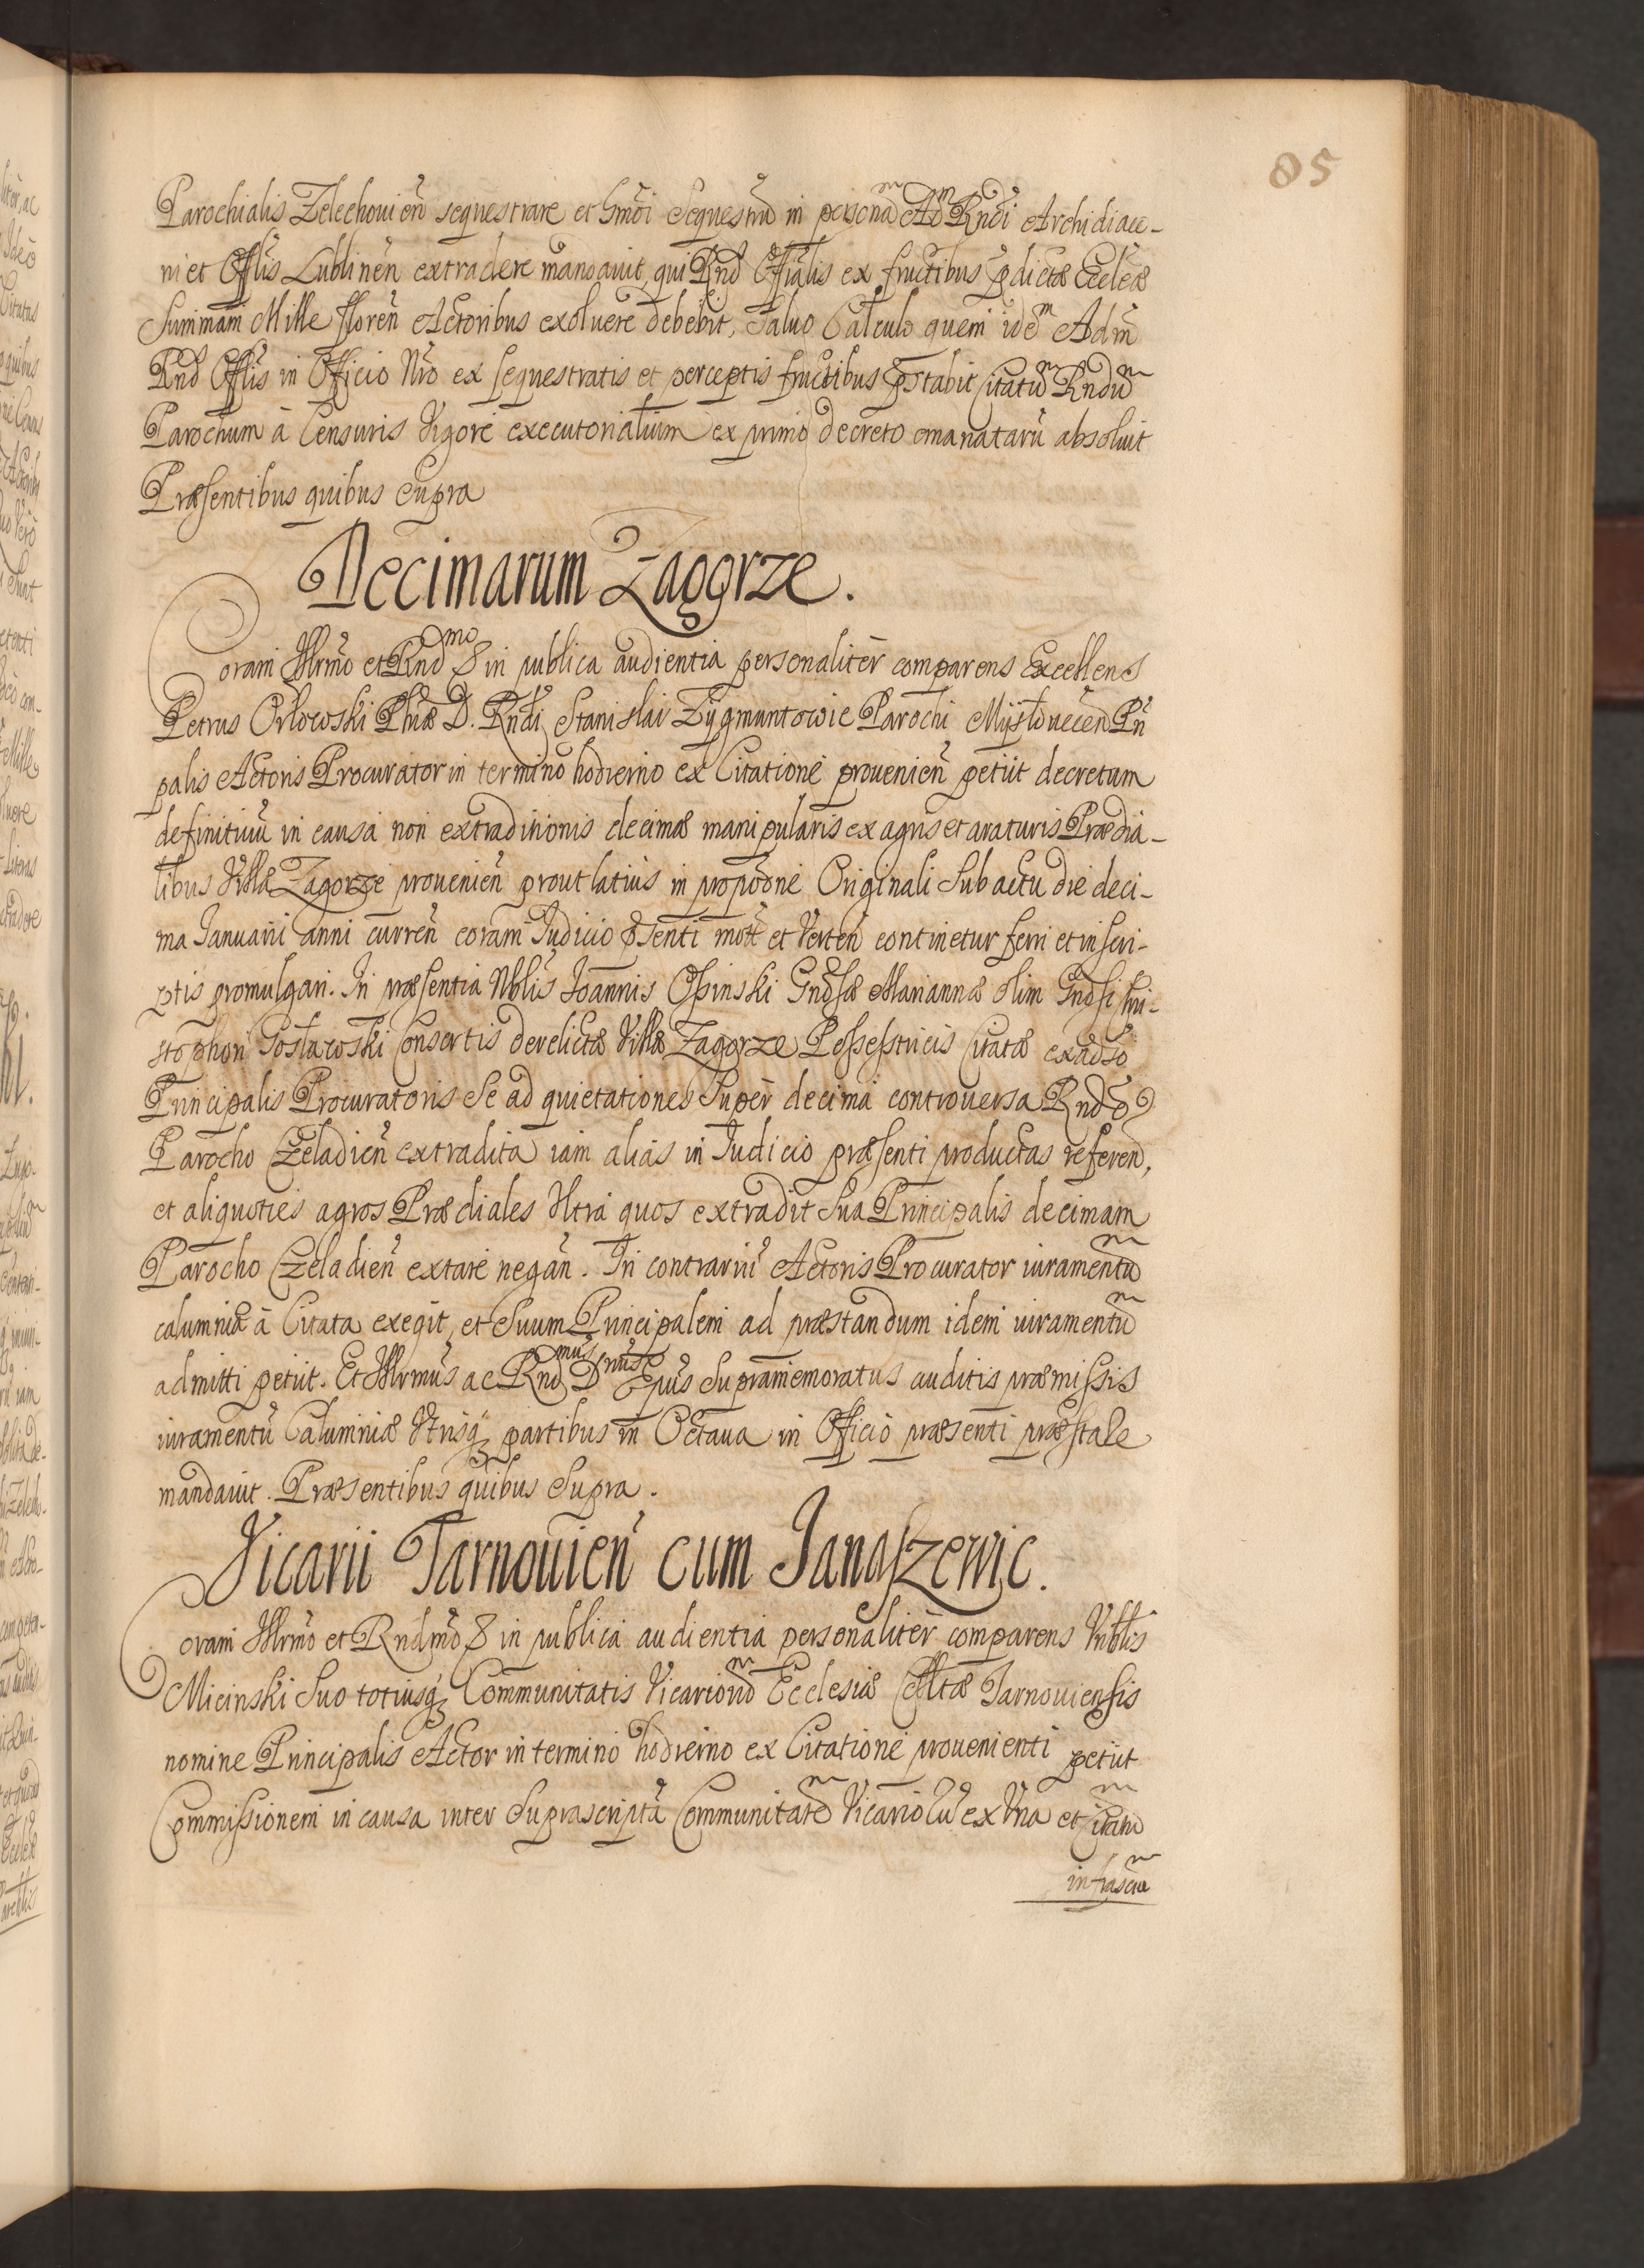 85
Parochialis Zelechouien̄ sequestrare et hm̄oi Sequestrū in personā Adm Rndi Archidiaco-
ni et Offlis Lublinen̄ extradere mandauit, qui Rnd Offialis ex fructibus p̄dictæ Eccleæ
Summam Mille floren̄ Actoribus exoluere debebit, Saluo Calculo quem idem Adm̄
Rnd Offlis in Officio Nr̄o ex sequestratis et perceptis fructibus p̄stabit Citatū Rndū
Parochum à Censuris Vigore executorialium ex primo decreto emanatarū absoluit
Præsentibus quibus Supra
Decimarum Zagorze.
Coram Illr̄mo et Rndmo &c in publica audientia personalitēr comparens Excellens
Petrus Orlowski Phiæ D. Rndi Stanislai Zygmuntowic Parochi Mysłouecen Pn̄
palis Actoris Procurator in termino hodierno ex Citatione prouenien̄ petiit decretum
definitiuū in causa non extraditionis decimæ manipularis ex agris et araturis Prædia-
libus Villæ Zagorze prouenien̄ prout latius in propōne Originali Sub actu die deci-
ma Januarii anni curren̄ coram Judicio p̄senti mot̄ et Verten̄ continetur ferri et in scri-
ptis promulgari. In præsentia Nblis Joannis Osinski Gndsæ Mariannæ olim Gndsi Chri-
stophori Consortis derelictæ Villæ Zagorze Possestricis Citatæ exaduo
Principalis Procuratoris Se ad quietationes Super decima controuersa Rndo
Parocho Czeladien̄ extradita iam alias in Judicio præsenti productas referen̄,
et aliquoties agros Prædiales Vltra quos extradit Sua Principalis decimam
Parocho Czeladien̄ extare negan̄. In contrariū Actoris Procurator iuramentū
calumniæ à Citata exegit, et Suum Principalem ad præstandum idem iuramentū
admitti petiit. Et Illr̄mus ac Rndmus Dnus Ep̄us Supramemoratus auditis præmissis
iuramentū Calumniæ Vtrisq partibus in Octaua in Officio præsenti præstare
mandauit. Præsentibus quibus Supra.
Vicarii Tarnouien̄ cum Janaszewic.
Coram Illr̄mo et Rndmo &c in publica audientia personalitēr comparens Vnblis
Micinski Suo totiusq Communitatis Vicariorū Ecclesiæ Colltæ Tarnouiensis
nomine Principalis Actor in termino hodierno ex Citatione prouenienti petiit
Commissionem in causa inter Suprascriptā Communitatē Vicariorū ex Vna et Citatū
infrascrū